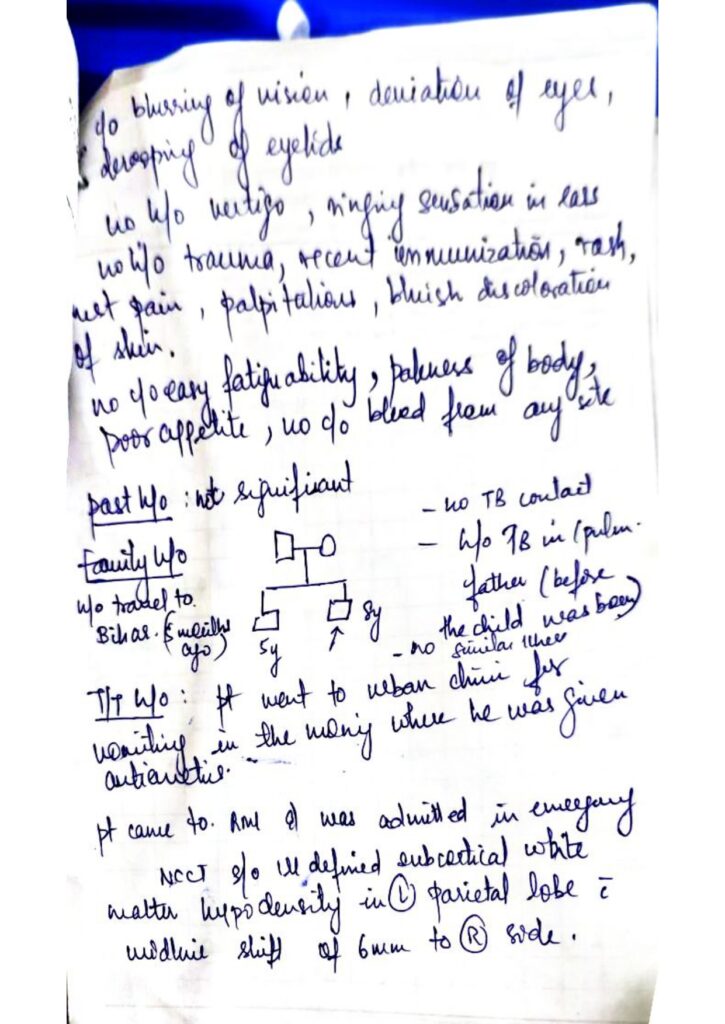 c/o blurring of vision, deviation of eyes,
drooping of eyelids
no h/o vertigo, ringing sensation in ears
no h/o trauma, recent immunization, rash,
pain, palpitations, bluish discoloration
of skin.
no c/o easy fatiguability, paleness of body,
poor appetite, no c/o bleed from any site
past h/o : not significant
Family h/o
h/o travel to
Bihar. (5 months
ago)
5y
8y
- no TB contact
- h/o TB in (pulm.
father (before
the child was born)
- no similar illness
T/T h/o : pt went to urban clinic for
vomiting in the morning where he was given
antiemetics.
pt came to RML & was admitted in emergency
NCCT s/o ill defined subcortical white
matter hypodensity in (L) parietal lobe c̄
midline shift of 6mm to (R) side.